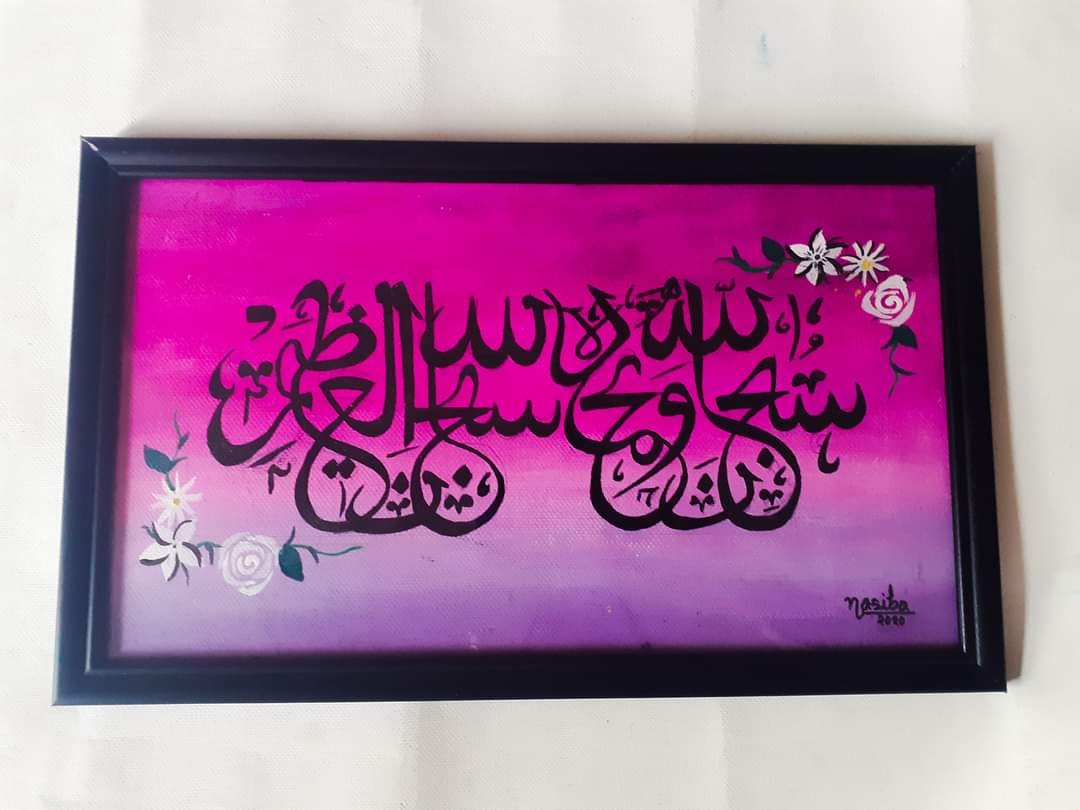 سبحان الله وبحمده سبحان الله العظيم
Nasiba
2020